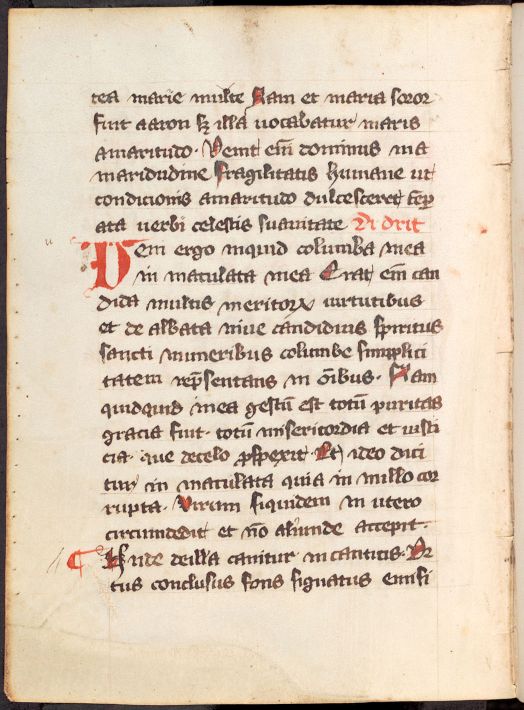 tea marie multe Nam et maria soror
fuit aaron sꝫ illa uocabatur maris
amaritudo · Venit em̄ dominus in a
maritudine fragilitatis humane ut
condicionis amaritudo dulcesceret temp̄
ata uerbi celestis suauitate
Veni ergo inquid columba mea
in maculata mea Erat em̄ can
dida multis meritoꝝ uirtutibus
et de albata niue candidius spiritus
sancti muneribus columbe simplici
tatem rep̄sentans in oībus · Nam
quidquid in ea gestū est totū puritas
gracia fuit · totū misericordia et iusti
cia · que de celo ꝓspexit Et ideo dici
tur in maculata quia in nullo cor
rupta · Virum siquidem in utero
circumdedit et nō aliunde accepit ·
Unde de illa canitur · in canticis · Or
tus conclusus fons signatus emissi